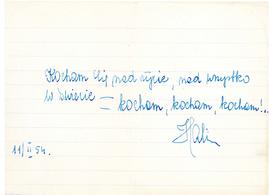 Kocham Cię nad życie, nad wszystko
w świecie – kocham, kocham, kocham!..
11/II 54.